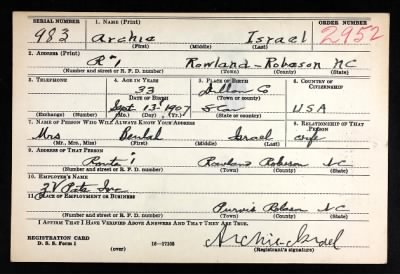 SERIAL NUMBER 1. NAME (Print) ORDER NUMBER
983 Archie Israel 2952
(First) (Middle) (Last)
2. ADDRESS (Print)
R#1 Rowland-Robeson NC
(Number and street or R. F. D. number) (Town) (County) (State)
3. TELEPHONE 4. AGE IN YEARS 5. PLACE OF BIRTH 6. COUNTRY OF CITIZENSHIP
33 Dillon Co
DATE OF BIRTH (Town or county)
Sept. 13-1907 S Car USA
(Exchange) (Number) (Mo.) (Day) (Yr.) (State or country)
7. NAME OF PERSON WHO WILL ALWAYS KNOW YOUR ADDRESS 8. RELATIONSHIP OF THAT PERSON
Mrs Beulah Israel wife
(Mr., Mrs., Miss) (First) (Middle) (Last)
9. ADDRESS OF THAT PERSON
1 Rowland Robeson NC
(Number and street or R. F. D. number) (Town) (County) (State)
10. EMPLOYER'S NAME
Pate Inc
11. PLACE OF EMPLOYMENT OR BUSINESS
Purvis Robeson NC
(Number and street or R. F. D. number) (Town) (County) (State)
I AFFIRM THAT I HAVE VERIFIED ABOVE ANSWERS AND THAT THEY ARE TRUE.
REGISTRATION CARD Archie Israel
D. S. S. Form 1 (over) 16-17105 (Registrant's signature)